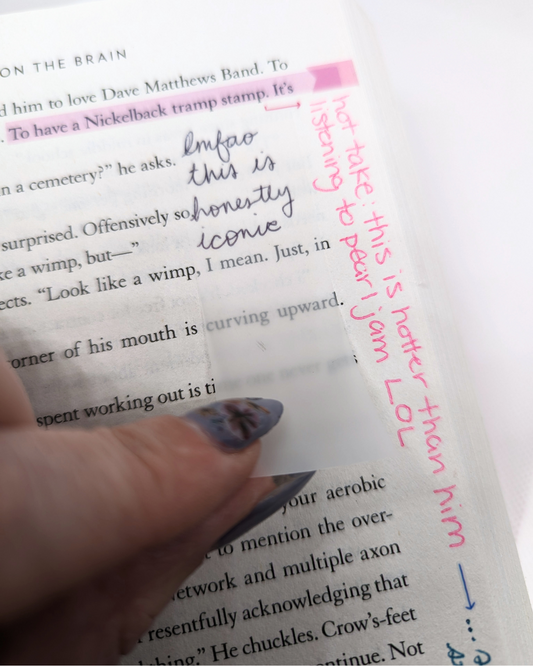 ON THE BRAIN
d him to love Dave Matthews Band. To
. To have a Nickelback tramp stamp. It's
n a cemetery?" he asks.
surprised. Offensively so,
ke a wimp, but—"
ects. "Look like a wimp, I mean. Just, in
orner of his mouth is curving upward.
spent working out is ti
your aerobic
to mention the over-
etwork and multiple axon
resentfully acknowledging that
hing." He chuckles. Crow's-feet
ntinue. Not
lmfao
this is
honestly
iconic
hot take: this is hotter than him → ...
listening to pearl jam LOL